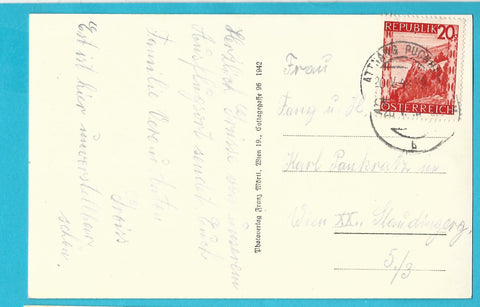 Herzliche Grüsse von unserem
Ausflugsort sendet Euch
Familie
Es ist hier unvorstellbar
schön.
Photoverlag Franz Mörtl, Wien 19., Cottagegasse 96 1942
REPUBLIK 20
ÖSTERREICH
ATTNANG PUCH
b
Frau
Fanz u.
Karl Pankratz
Wien XX. Staudingerg.
5/3